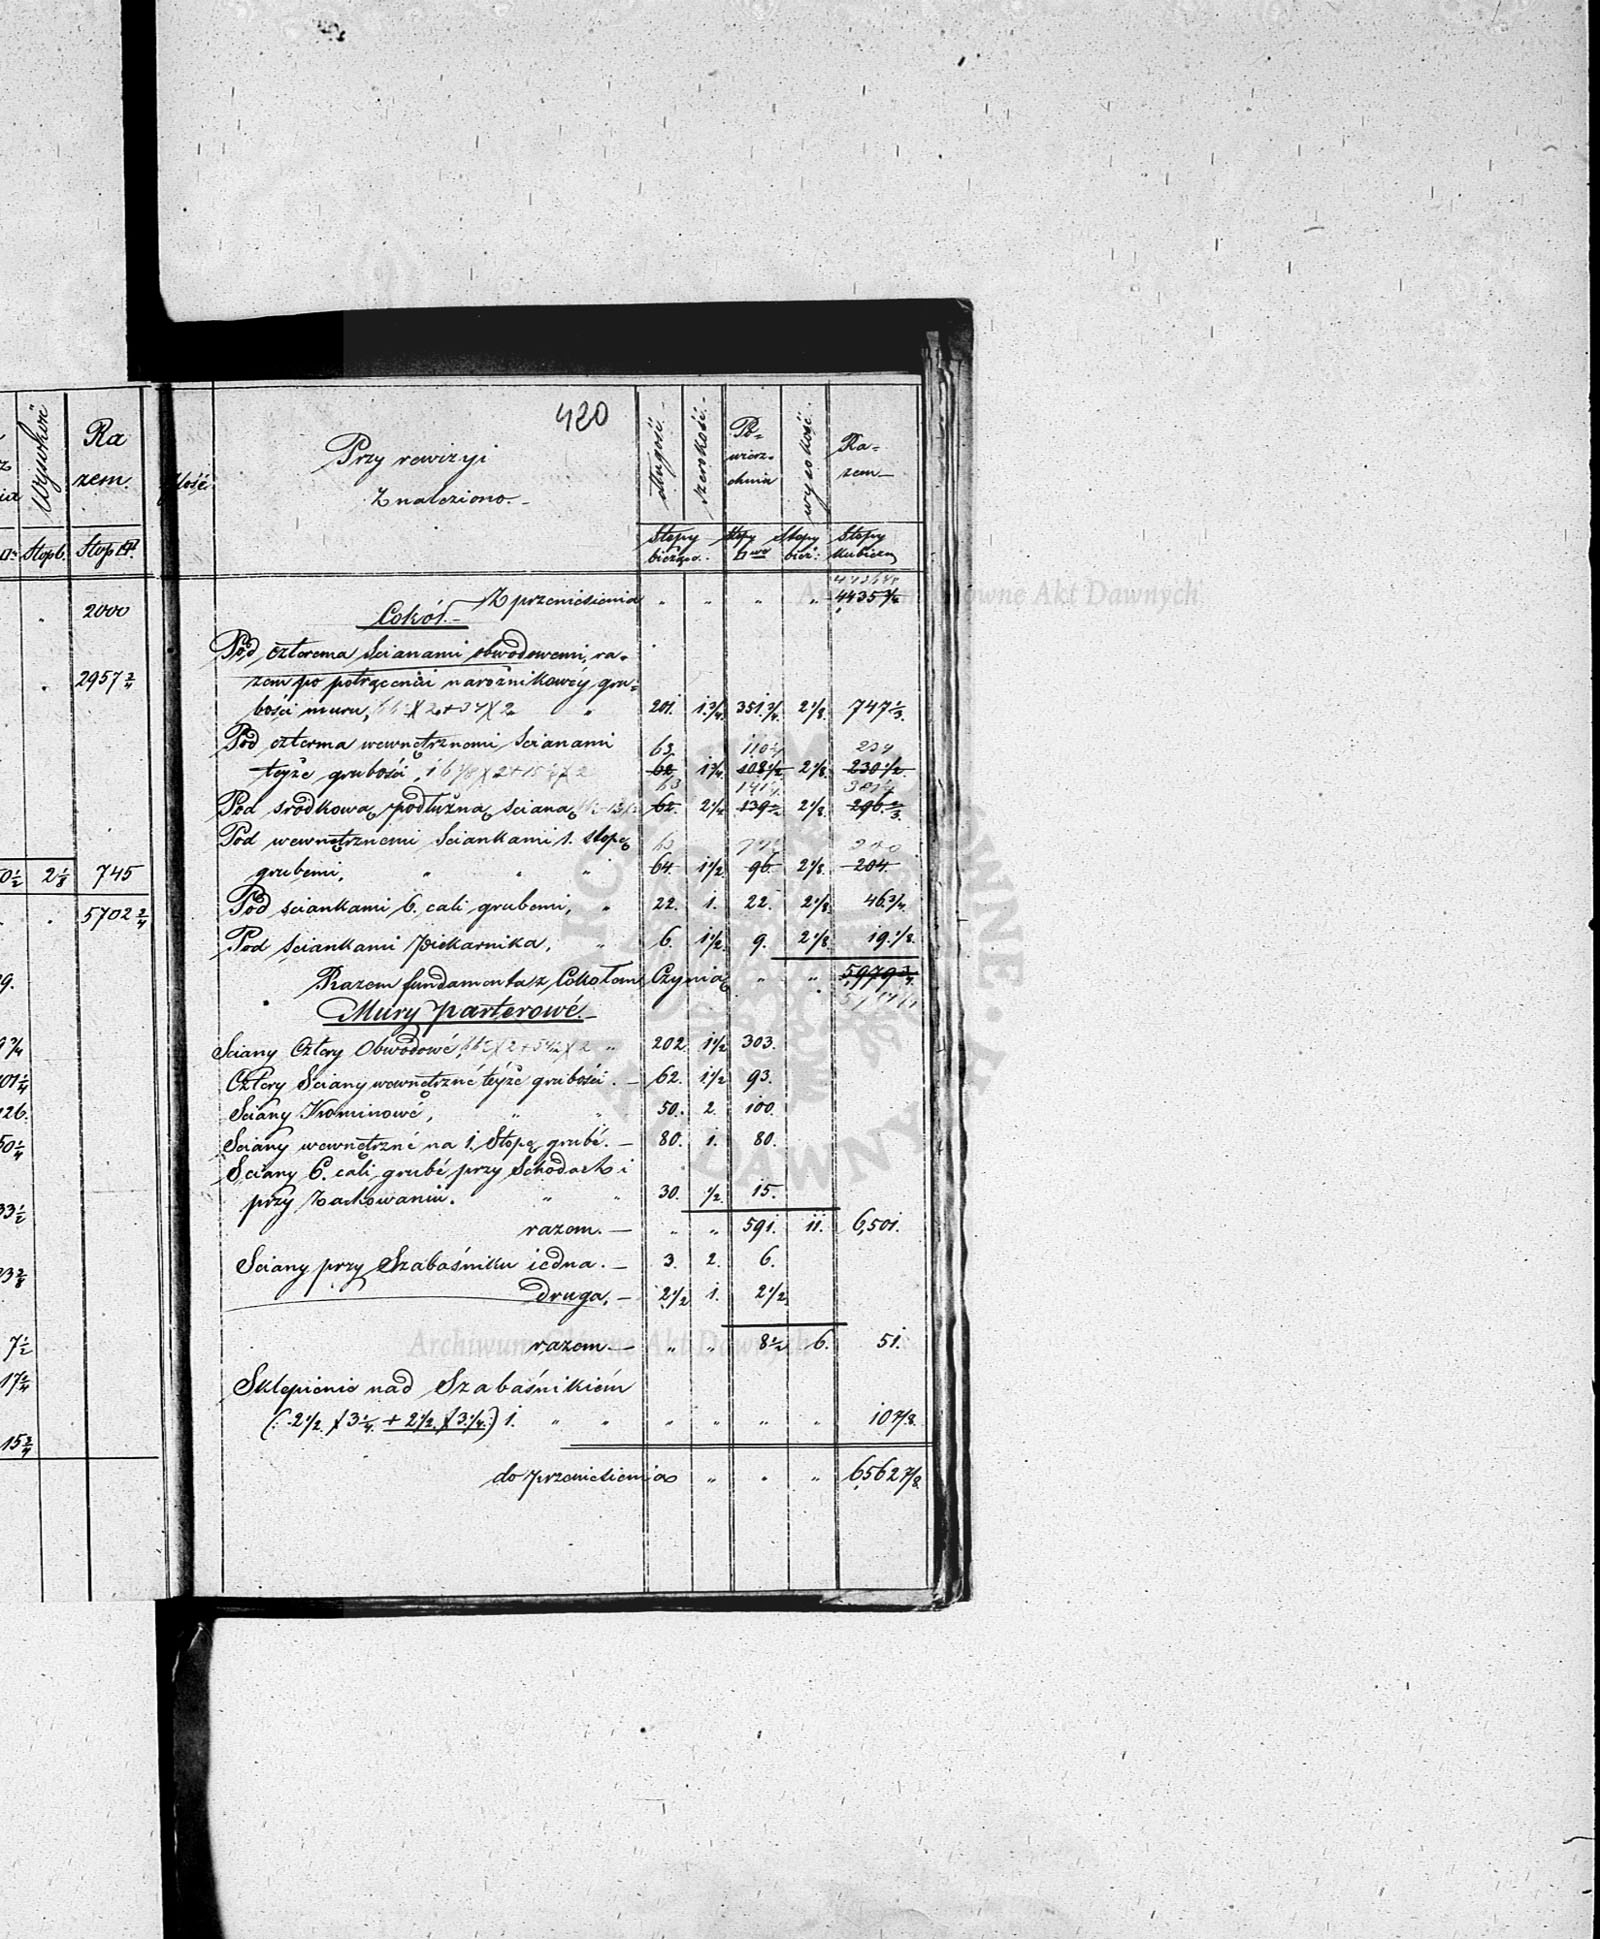 Wysokość
Ra
zem.
Stop b.
2000
2957 2/4
0 1/2 2 1/8 745
5702 2/4
9.
9 3/4
101 1/4
126.
50 1/4
33 1/2
23 2/8
7 1/2
17 2/4
15 2/4
420
Ilość
Przy rewizyi
Znaleziono.
długość.
szerokość.
Po-
wierz-
chnia
wysokość.
Ra-
zem
Stopy
bieżące.
Stopy
Stopy
bież:
Stopy
kubiczn
Z przeniesienia " " " " 4435
Cokół.
Pod czterema scianami obwodowemi, ra-
zem po potrąceniu narożnikowéy gru-
bości muru, " 201. 1 3/4. 351 3/4. 2 1/8. 747 1/3.
Pod czterma wewnętrznemi scianami
63 110 1/4 234
teyże grubości, 62 1 3/4. 108 1/2 2 1/8. 230 1/2.
63 141 3/4
Pod srodkową podłużną scianą 62. 2 1/4 139 1/2 2 1/8. 296 2/3.
Pod wewnętrznemi sciankami 1. stopę
63
grubemi, " " " 64. 1 1/2. 96. 2 1/8. 204.
Pod sciankami 6. cali grubemi, " 22. 1. 22. 2 1/8. 46 3/4.
Pod sciankami piekarnika, " 6. 1 1/2. 9. 2 1/8. 19 1/8.
Razem fundamenta z Cokołem Czynią " " 5979 3/4.
Mury parterowé.
Sciany Cztery Obwodowé, " 202. 1 1/2 303.
Cztery Sciany wewnętrzné téyże grubości. 62. 1 1/2 93.
Sciany Kominowé, " " 50. 2. 100.
Sciany wewnętrzné na 1. Stopę grubé. 80. 1. 80.
Sciany 6. cali grubé przy Schodach i
przy Zachowaniu. " " 30. 1/2. 15.
razem. " " 591. 11. 6,501.
Sciany przy Szabaśniku iedna. 3. 2. 6.
druga, 2 1/2 1. 2 1/2.
razem. " " 8 1/2 6. 51.
Sklepienie nad Szabaśnikiém
(: 2 1/2. X 3 1/4. + 2 1/2. X 3 1/4.) 1. " " " " " " 10 7/8.
do przeniesienia " " " 6562 7/8.
Archiwum Główne Akt Dawnych
Archiwum Główne Akt Dawnych